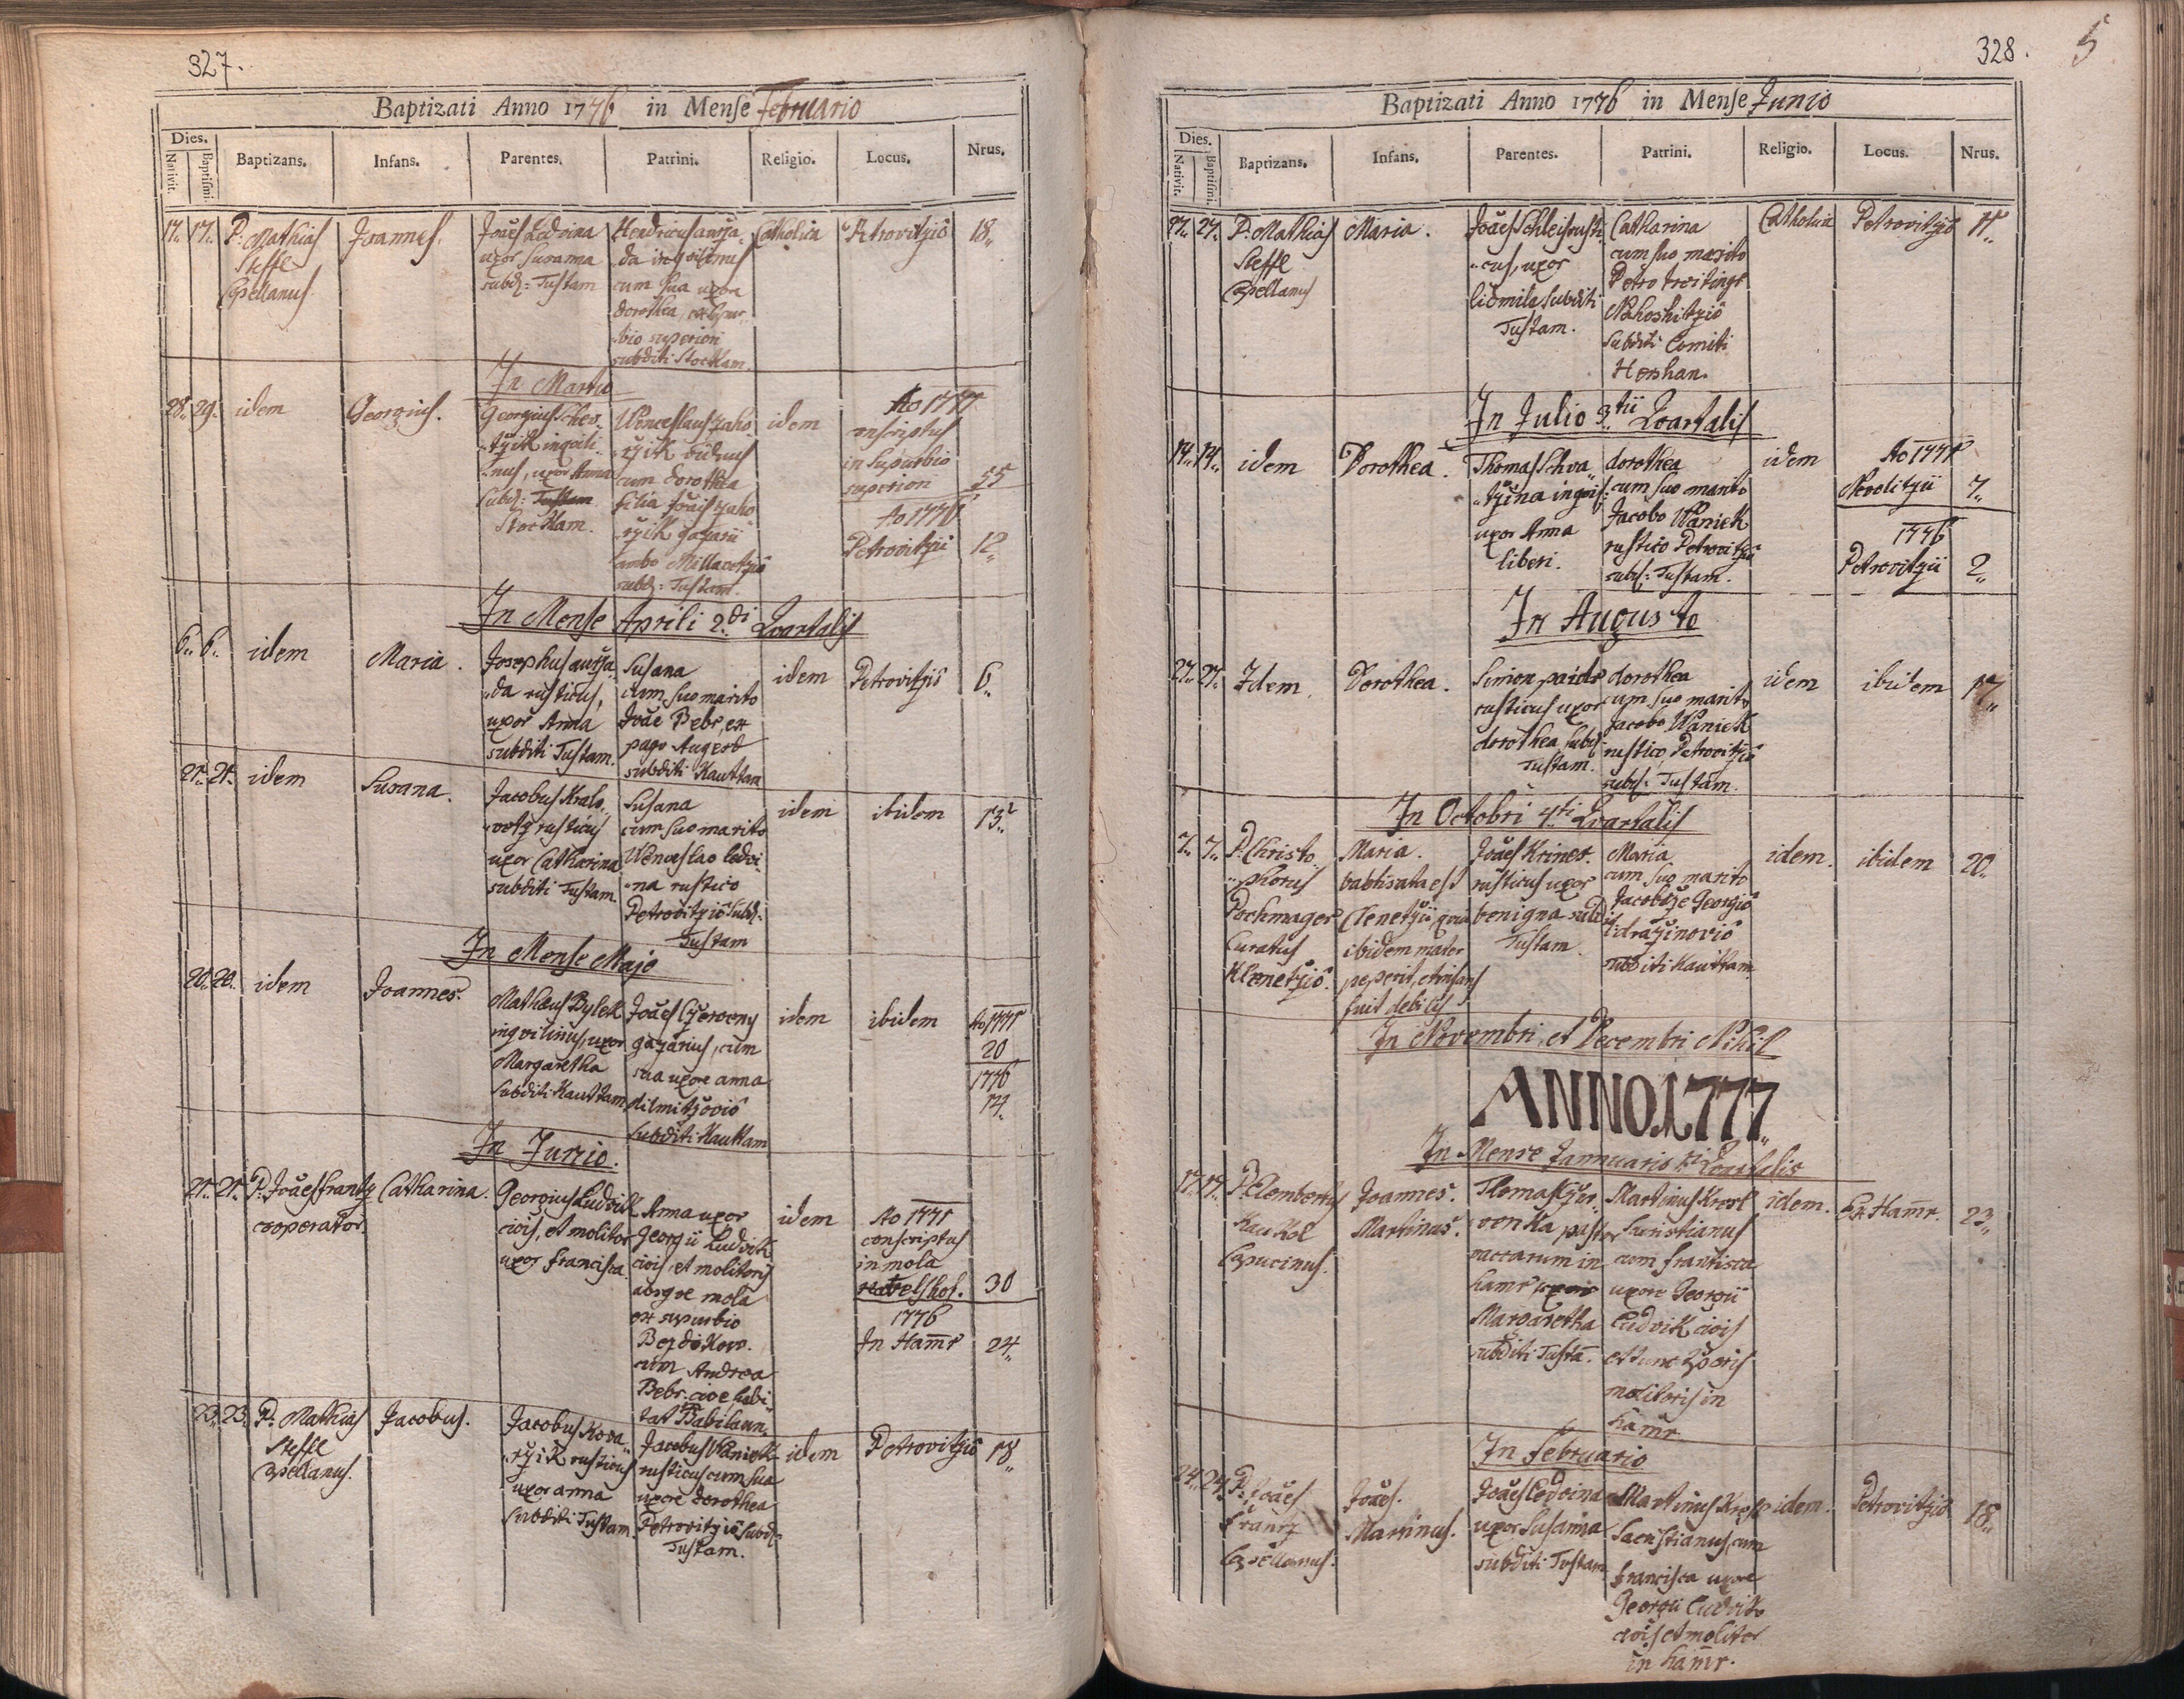 327.
Baptizati Anno 1776 in Menſe Februario
Dies.
Nativit.
Baptiſmi
Baptizans.
Infans.
Parentes.
Patrini.
Religio.
Locus.
Nrus.
17. 17.
P: Mathias
Steffl
Capellanus.
Joannes.
Joães Ledvina
uxor Susanna
subd: Tustam
Hendricus
cum sua uxore
dorothea, ex Subur
bio superiori
subditi Stocklam.
Catholica
Petrovitzio
18
In Martio
28. 29.
idem
Georgius.
Georgius
uxor Anna
subd: Tustam
Stocklam.
Wenceslaus zaho
cum dorothea
filia Joãis zaho
ambo
subd: Tustam.
idem
Ao 1771
conscriptus
in Suburbio
superiori
55
Ao 1776
Petrovitzii
12
In Mense Aprili 2di Quartalis
6. 6.
idem
Maria.
Josephus
da rusticus,
uxor Anna
subditi Tustam.
Susana
cum suo marito
Joãe Bebr, ex
pago Augezd
subditi Kauttam
idem
Petrovitzio
6
21. 21.
idem
Susana.
Jacobus Kralo
vetz rusticus
uxor Catharina
subditi Tustam.
Susana
cum suo marito
Wenceslao ledvi
na rustico
Petrovitzio subd.
Tustam
idem
ibidem
13
In Mense Majo
20. 20.
idem
Joannes.
Matheus Bylek
inqvilinus, uxor
Margaretha
subditi Kauttam
Joães Czerveny
gazarius, cum
sua uxore anna
subditi Kauttam
idem
ibidem
Ao 1771
20
1776
14
In Junio.
21. 21.
P. Joães frantz
cooperator.
Catharina.
Georgius Ludvik
civis, et molitor
uxor francisca.
Anna uxor
Georgii Ludvik
civis, et molitoris
mola
ex suburbio
cum Andrea
Bebr. cive habi
tat Babilonn.
idem
Ao 1771
conscriptus
in mola
30
1776
In Ham̄r
24
23. 23.
P. Mathias
Steffl
Capellanus.
Jacobus.
Jacobus Kova
rzik rusticus
uxor anna
subditi Tustam.
Jacobus Waniek
rusticus cum sua
uxore dorothea
Petrovitzio subd.
Tustam.
idem
Petrovitzio
18
328.
5
Baptizati Anno 1776 in Menſe Junio
Dies.
Nativit.
Baptiſmi
Baptizans.
Infans.
Parentes.
Patrini.
Religio.
Locus.
Nrus.
27. 27.
P. Mathias
Steffl
Capellanus
Maria.
Joães Schleis rusti
cus, uxor
lidmila subditi
Tustam.
Catharina
cum suo marito
Petro
subditi Comiti
Catholica
Petrovitzio
In Julio 3tii Quartalis
14. 14.
idem
Dorothea.
Thomas Schva
tzina inqvil:
uxor Anna
liberi.
dorothea
cum suo marito
Jacobo Waniek
rustico Petrovitzio
subd: Tustam.
idem
Ao 1771
7
1776
Petrovitzii
2
In Augusto
27. 27.
Idem.
Dorothea.
Simon paidr
rusticus uxor
dorothea subd:
Tustam.
dorothea
cum suo marito
Jacobo Waniek
rustico Petrovitzio
subd: Tustam.
idem
ibidem
17
In Octobri 4ti Quartalis
7. 7.
P. Christo
phorus
Pochmager
Curatus
Klenetzio.
Maria.
babtisata est
Clenetzii, quia
ibidem mater
peperit, et infans
fuit debilis
Joães Kriner.
rusticus uxor
benigna subditi
Tustam
Maria
cum suo marito
Georgio
subditi Kauttam.
idem.
ibidem
20
In Novembri, et Decembri Nihil
ANNO 1777
In Mense Jannuario 1mi Quartalis
17. 17.
Capucinus.
Joannes.
Martinus.
Thomas
venka pastor
vaccarum in
hamr uxor
Margaretha
subditi Tusta.
Martinus
Sacristianus
cum francisca
uxore Georgii
Ludvik civis
molitoris in
hamr
idem.
Ex Ham̄r.
23
In Februario
24. 24.
P. Joães
Frantz
Capellanus.
Joães.
Martinus.
Joães Ledvina
uxor Susanna
subditi Tustam
Martinus
Sacristianus, cum
francisca uxore
Georgii Ludvik
civis et molitor
in hamr.
idem.
Petrovitzio
18